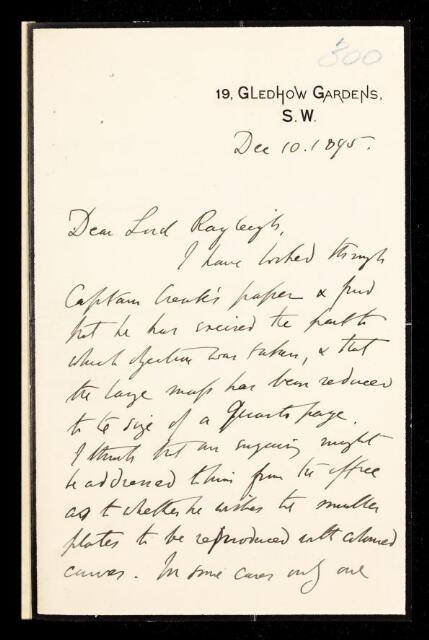 300
19, GLEDHOW GARDENS,
S.W.
Dec 10. 1895.
Dear Lord Rayleigh,
I have looked through
Captain Creak's paper & find
that he has revised the parts to
which objection was taken, & that
the large maps has been reduced
to the size of a Quarto page.
I think that an enquiry might
be addressed to him from the office
as to whether he wishes the smaller
plates to be reproduced with coloured
curves. In some cases only one